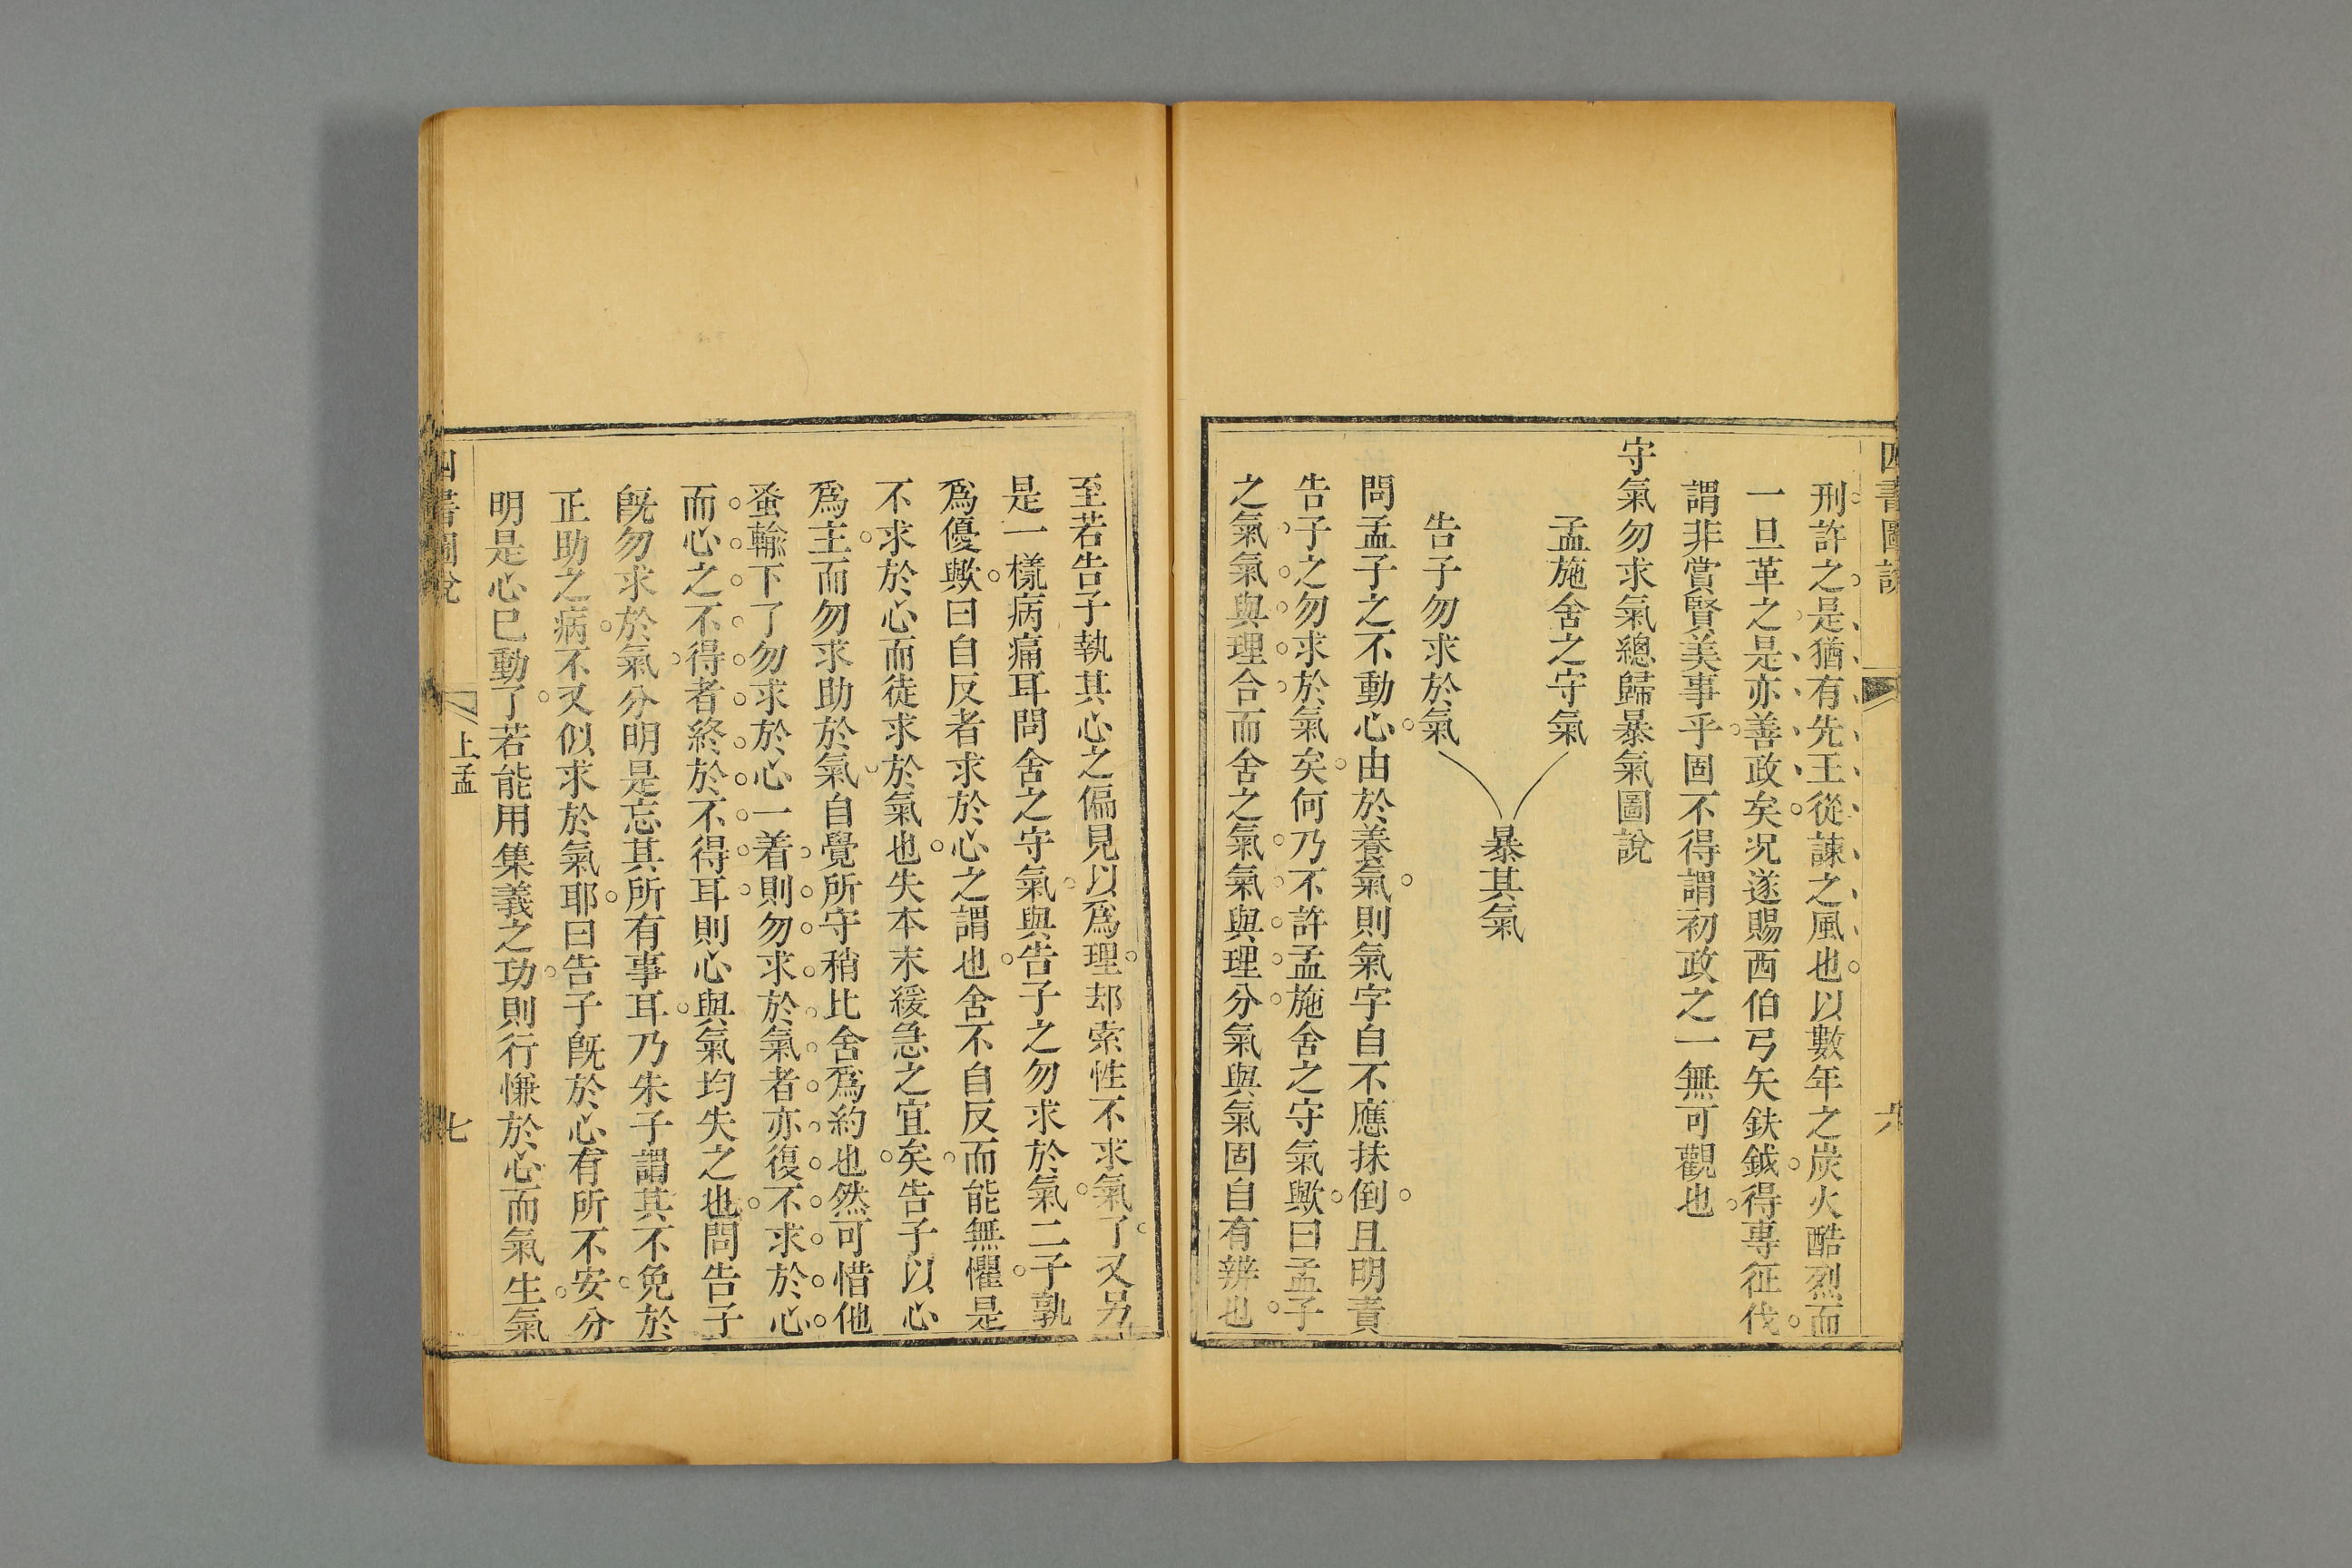 四書圖說
六
刑許之是猶有先王從諫之風也以數年之炭火酷烈而
一旦革之是亦善政矣况遂賜西伯弓矢鈇鉞得專征伐
謂非賞賢美事乎固不得謂初政之一無可觀也
守氣勿求氣總歸暴氣圖說
孟施舍之守氣
暴其氣
告子勿求於氣
問孟子之不動心由於養氣則氣字自不應抹倒且明責
告子之勿求於氣矣何乃不許孟施舍之守氣歟曰孟子
之氣氣與理合而舍之氣氣與理分氣與氣固自有辨也
至若告子執其心之偏見以爲理却索性不求氣了又另
是一樣病痛耳問舍之守氣與告子之勿求於氣二子孰
爲優歟曰自反者求於心之謂也舍不自反而能無懼是
不求於心而徒求於氣也失本末緩急之宜矣告子以心
爲主而勿求助於氣自覺所守稍比舍爲約也然可惜他
蚤輸下了勿求於心一着則勿求於氣者亦復不求於心
而心之不得者終於不得耳則心與氣均失之也問告子
旣勿求於氣分明是忘其所有事耳乃朱子謂其不免於
正助之病不又似求於氣耶曰告子旣於心有所不安分
明是心已動了若能用集義之功則行慊於心而氣生氣
四書圖說
上孟
七